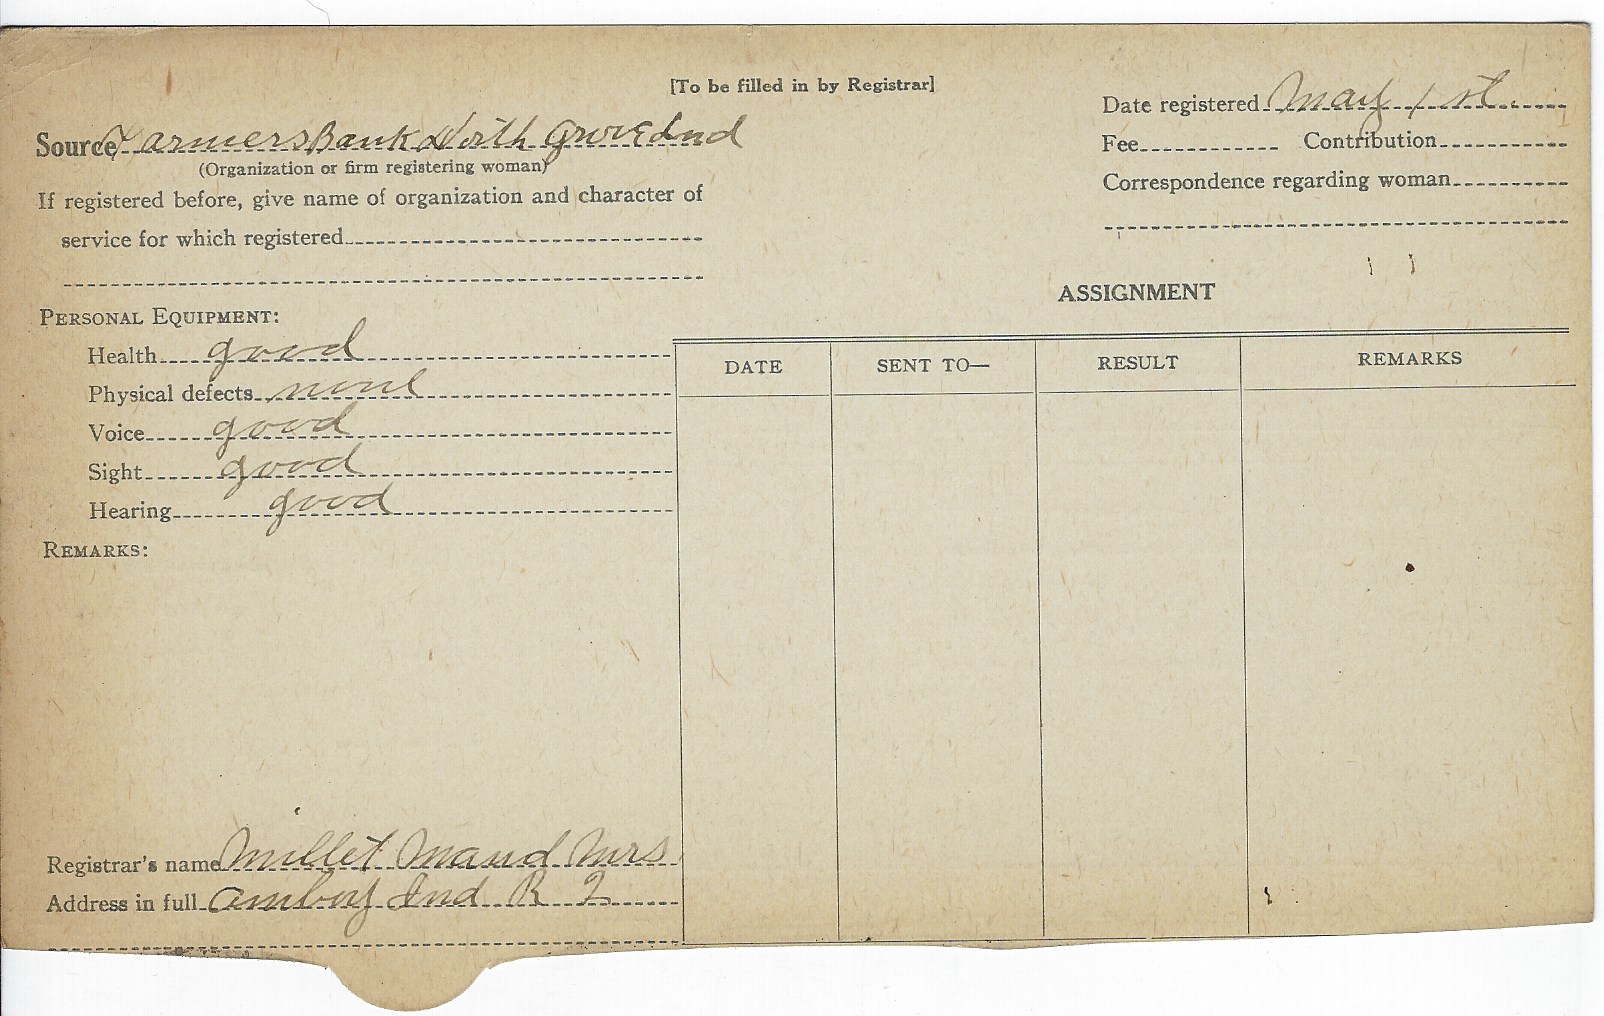 [To be filled in by Registrar]
Date registered May 1st.
Source Farmers Bank North Grove Ind
Fee Contribution
(Organization or firm registering woman)
Correspondence regarding woman
If registered before, give name of organization and character of
service for which registered
ASSIGNMENT
PERSONAL EQUIPMENT:
Health good
DATE SENT TO— RESULT REMARKS
Physical defects none
Voice good
Sight good
Hearing good
REMARKS:
Registrar's name Millet Maud Mrs
Address in full Amboy Ind R 2